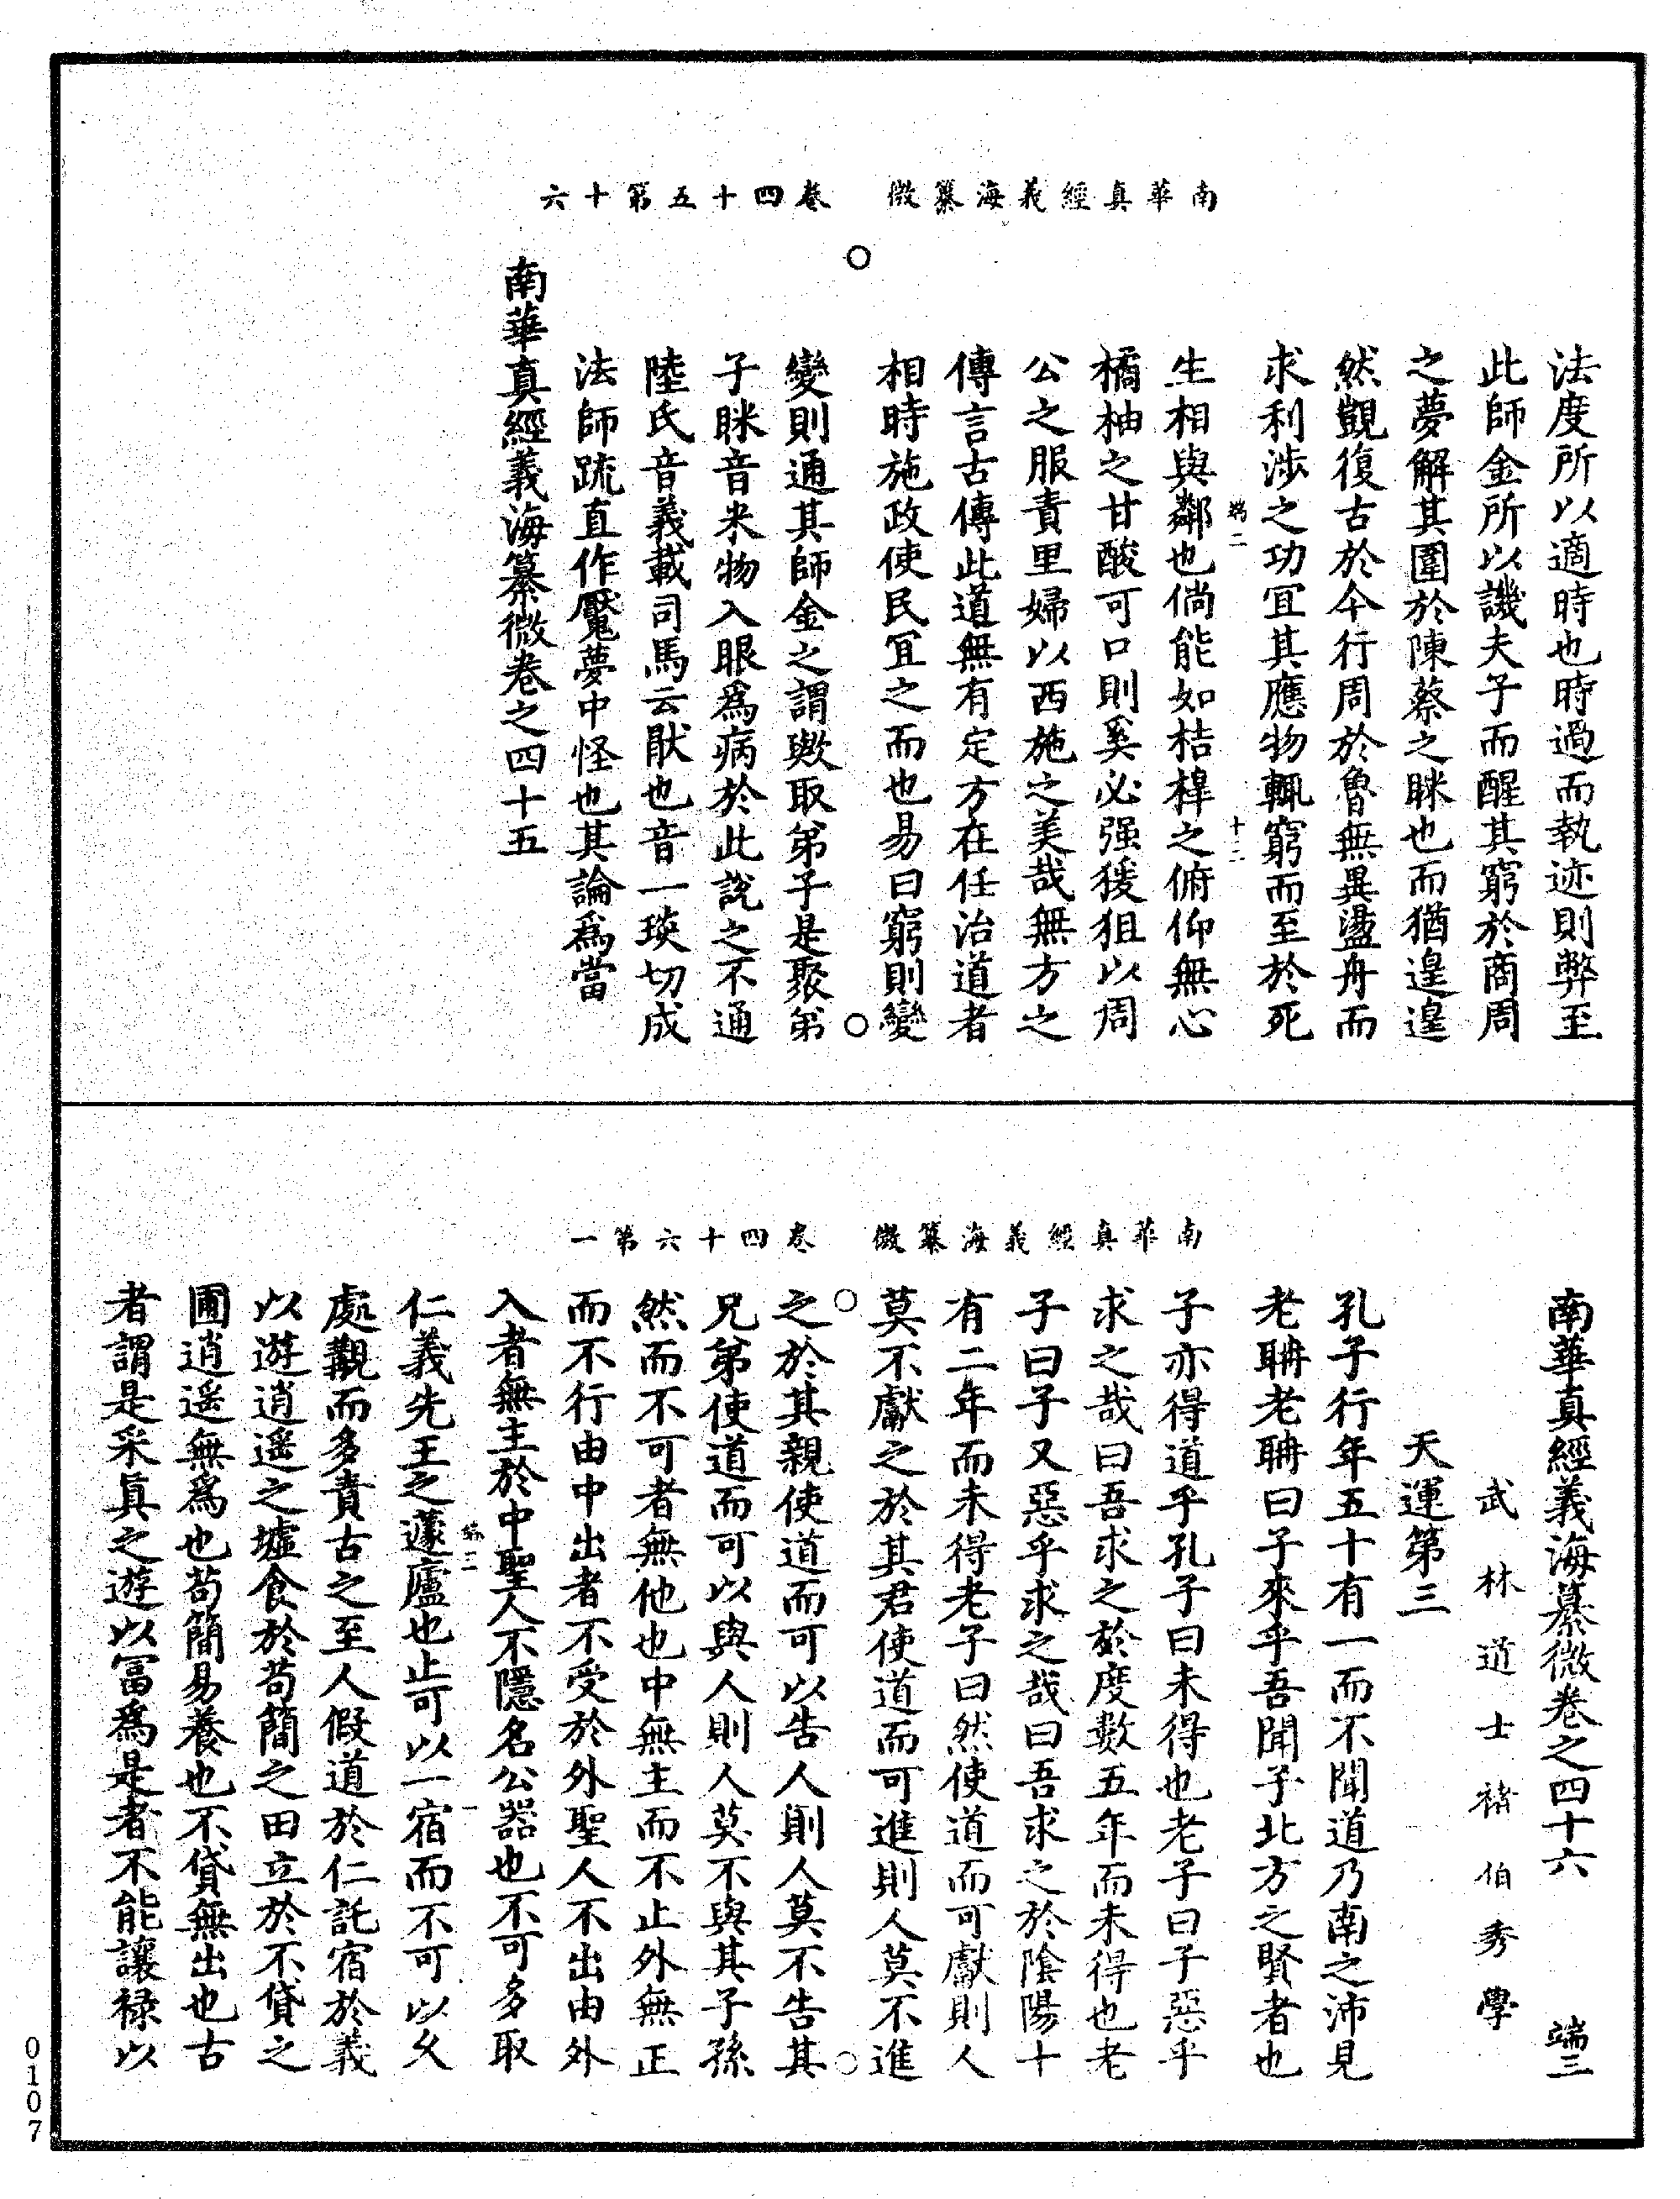 南華真經義海纂微　卷四十五第十六
法度所以適時也時過而執迹則弊至
此師金所以譏夫子而醒其窮於商周
之夢解其圍於陳蔡之眯也而猶遑遑
然覬復古於今行周於魯無異盪舟而
求利涉之功冝其應物輒窮而至於死
端二　十二
生相與鄰也倘能如桔橰之俯仰無心
橘柚之甘酸可口則奚必强猨狙以周
公之服責里婦以西施之美哉無方之
傳言古傳此道無有定方在任治道者
相時施政使民冝之而也易曰窮則變
變則通其師金之謂歟取弟子是聚弟
子眯音米物入眼爲病於此說之不通
陸氏音義載司馬云猒也音一琰切成
法師疏直作魘夢中怪也其論爲當
南華真經義海纂微卷之四十五
南華真經義海纂微　卷四十六第一
南華真經義海纂微卷之四十六　端三
武林道士褚伯秀學
天運第三
孔子行年五十有一而不聞道乃南之沛見
老聃老聃曰子來乎吾聞子北方之賢者也
子亦得道乎孔子曰未得也老子曰子惡乎
求之哉曰吾求之於度數五年而未得也老
子曰子又惡乎求之哉曰吾求之於陰陽十
有二年而未得老子曰然使道而可獻則人
莫不獻之於其君使道而可進則人莫不進
之於其親使道而可以告人則人莫不告其
兄弟使道而可以與人則人莫不與其子孫
然而不可者無他也中無主而不止外無正
而不行由中出者不受於外聖人不出由外
入者無主於中聖人不隱名公器也不可多取
端三　一
仁義先王之蘧廬也止可以一宿而不可以久
處覯而多責古之至人假道於仁託宿於義
以遊逍遥之墟食於苟簡之田立於不貸之
圃逍遥無爲也苟簡易養也不貸無出也古
者謂是采眞之遊以冨爲是者不能讓禄以
0107